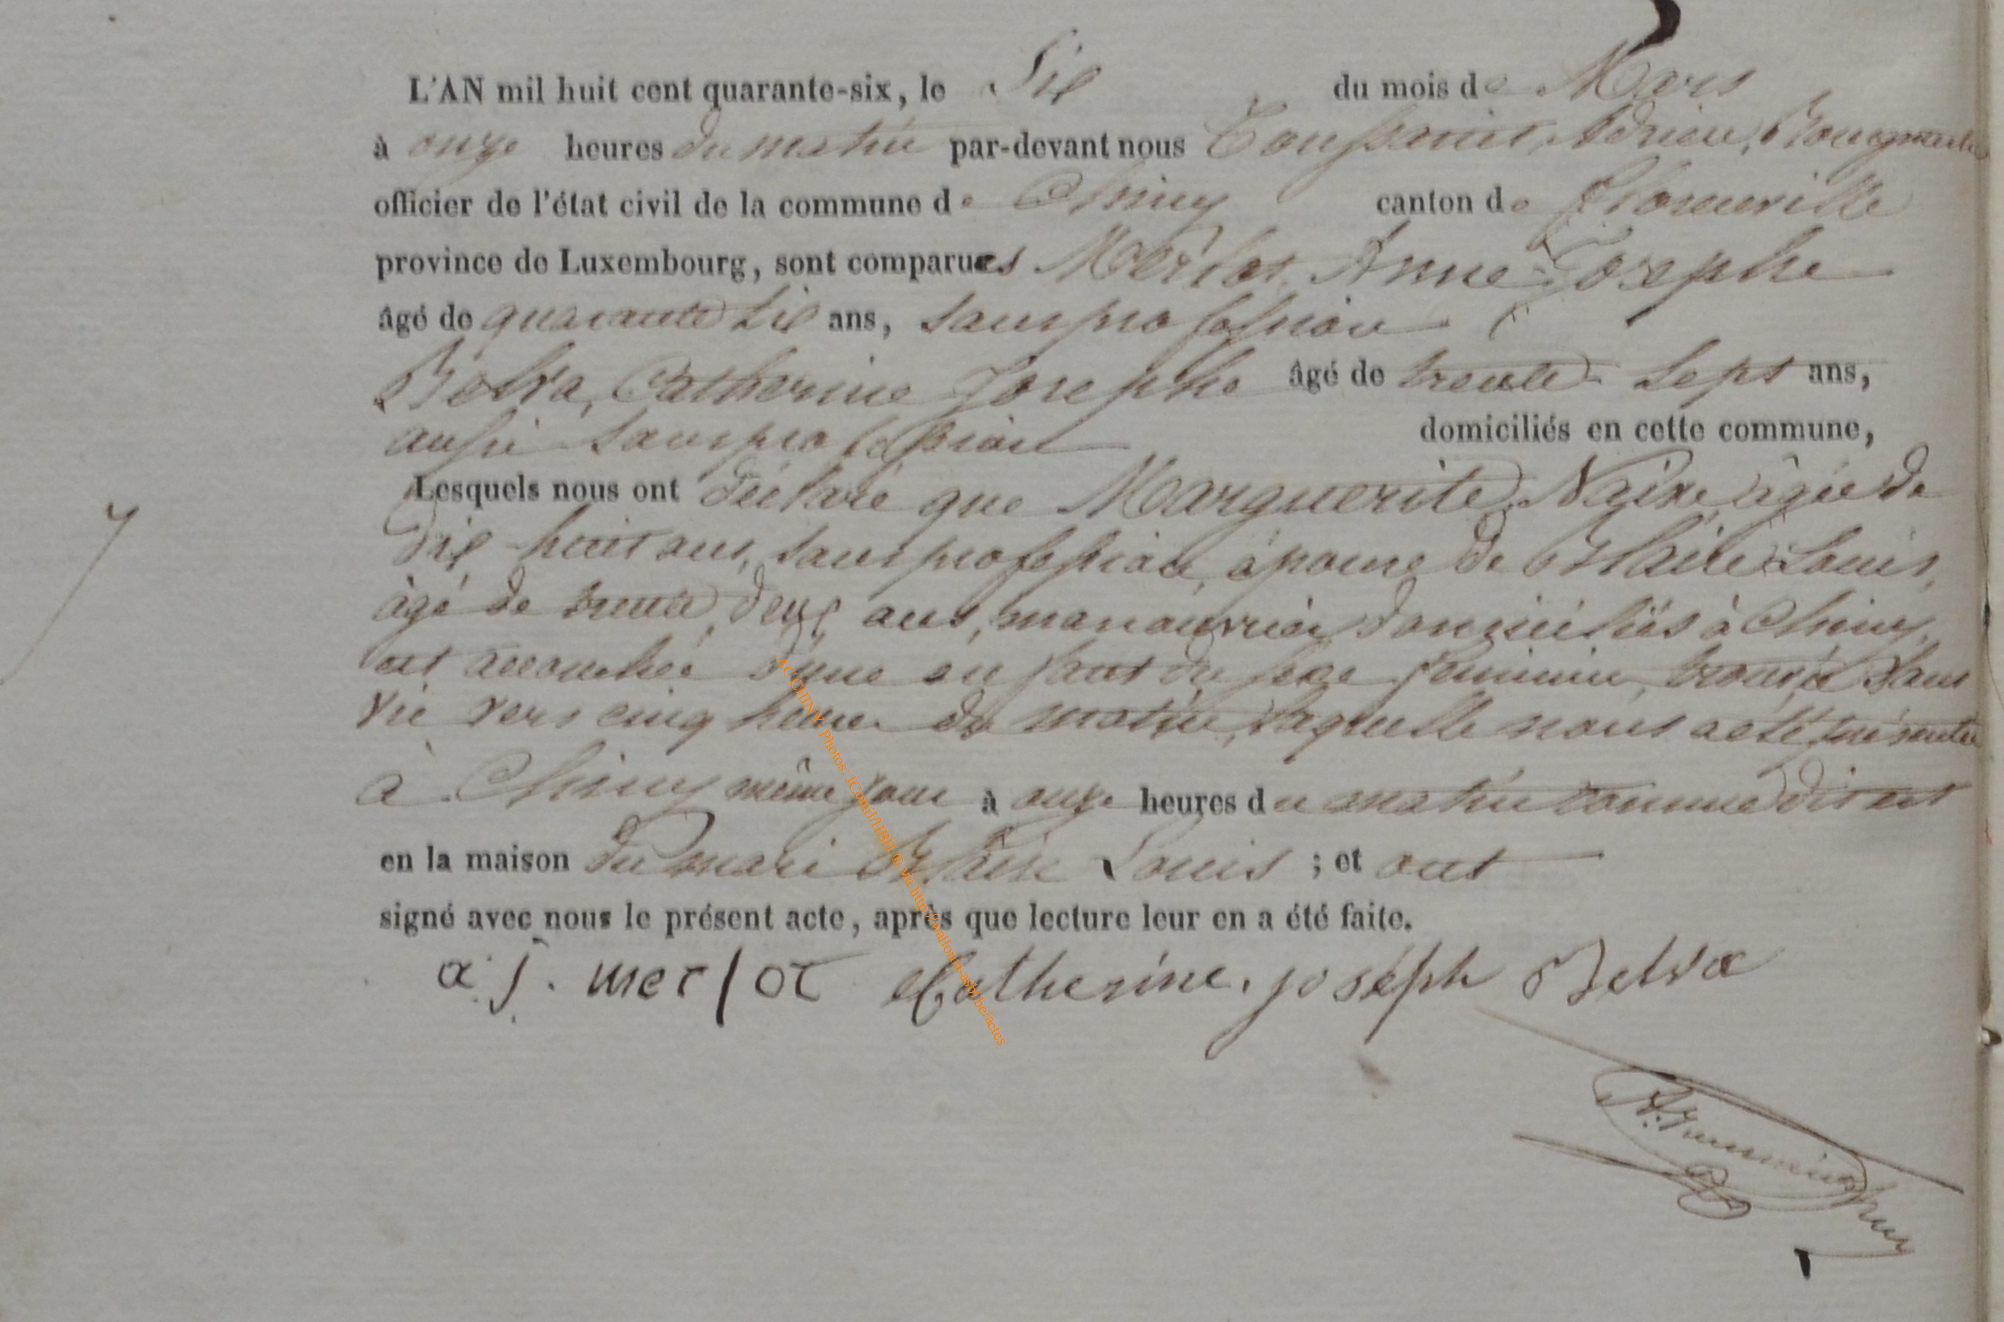 L'AN mil huit cent quarante-six, le Six du mois de Mars
à onze heures du matin par-devant nous Toussaint, Adrien,
officier de l'état civil de la commune de Chiny canton de Florenville
province de Luxembourg, sont comparues Merlot, Anne Josephe
âgé de quarante six ans, sans profession
Belva, Catherine Josephe âgé de trente sept ans,
aussi sans profession domiciliés en cette commune,
Lesquels nous ont déclaré que Marguerite Naise, âgée de
dix-huit ans, sans profession, épouse de Blaise Louis,
âgé de trente deux ans, manouvrier domiciliés à Chiny,
est accouchée d'une enfant du sexe féminin, trouvé sans
vie vers cinq heures du matin, laquelle nous a été présentée
à Chiny même jour à onze heures du matin comme disant
en la maison du mari Blaise Louis ; et ont
signé avec nous le présent acte, après que lecture leur en a été faite.
a. j. merlot Catherine. joséph Belva
7